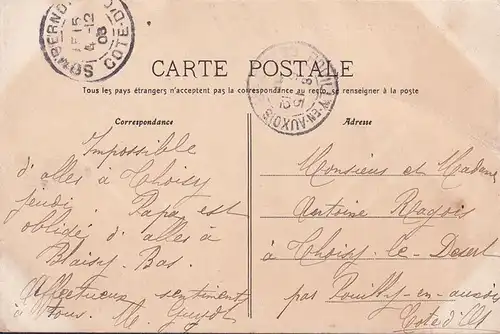 SOMBERNON
COTE-D'OR
15 15
4-12
08
POUILLY-EN-AUXOIS
CARTE POSTALE
Tous les pays étrangers n'acceptent pas la correspondance au recto, se renseigner à la poste
Correspondance
Impossible
d'aller à Thoisy
jeudi. Papa est
obligé d'aller à
Blaisy-Bas.
Affectueux sentiments
à tous. M. Guyot
Adresse
Monsieur et Madame
Antoine Ragois
à Thoisy-le-Désert
par Pouilly-en-auxois
Côte d'Or